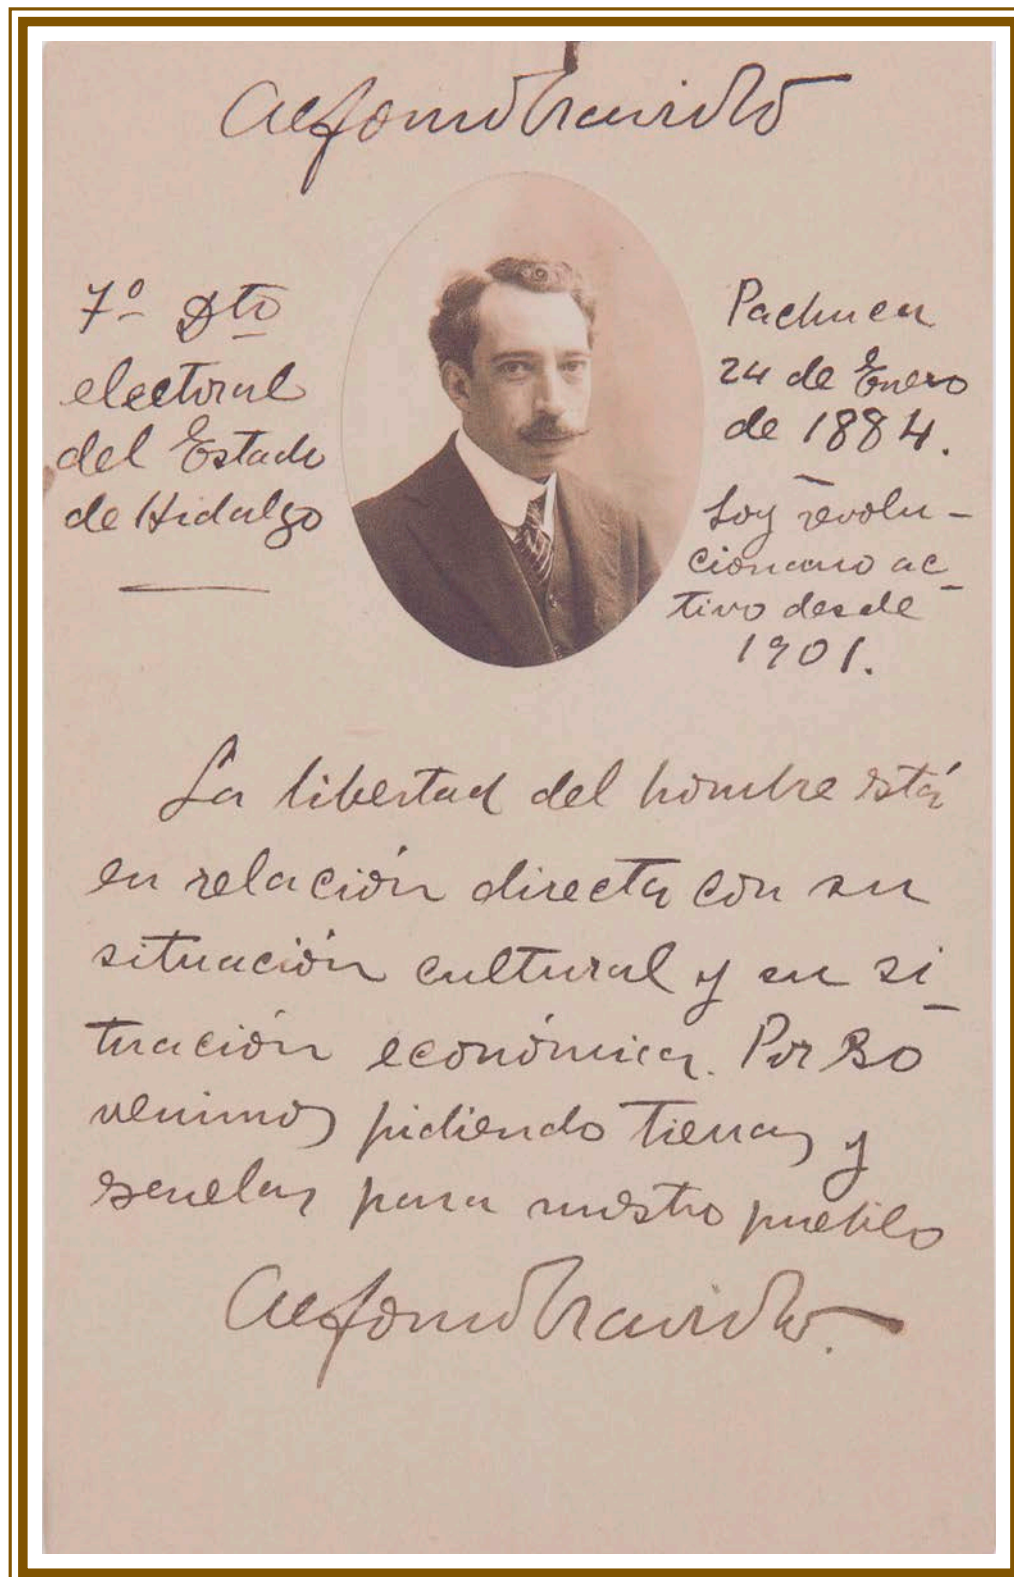 Alfonso Cravioto
7º Dto
electoral
del Estado
de Hidalgo
Pachuca
24 de Enero
de 1884.
Soy revolu-
cionario ac-
tivo desde
1901.
La libertad del hombre está
en relación directa con su
situación cultural y su si-
tuación económica. Por eso
venimos pidiendo tierras y
escuelas para nuestro pueblo
Alfonso Cravioto.